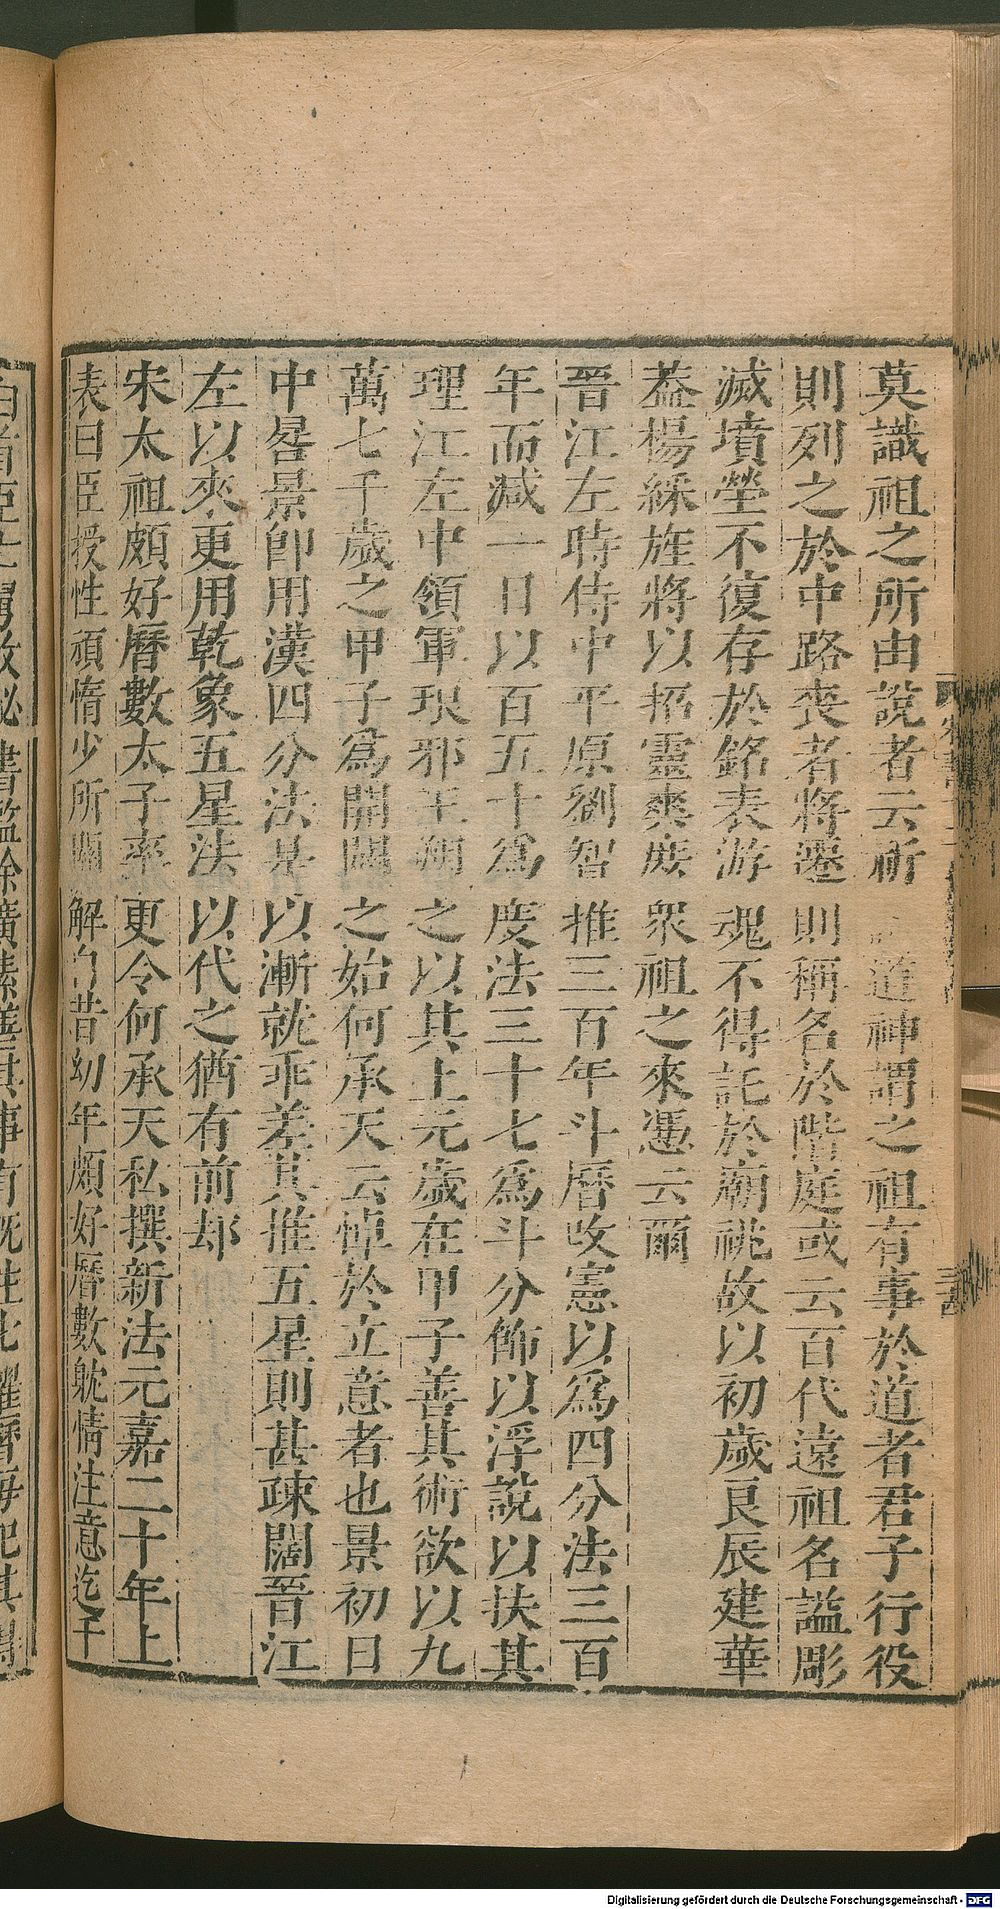 莫識祖之所由說者云祈 道神謂之祖有事於道者君子行役
則列之於中路喪者將遷則稱名於階庭或云百代遠祖名謚彫
滅墳塋不復存於銘表游魂不得託於廟祧故以初歲良辰建華
葢楊綵旌將以招靈爽庶衆祖之來憑云爾
晉江左時侍中平原劉智推三百年斗曆改憲以爲四分法三百
年而減一日以百五十爲度法三十七爲斗分飾以浮說以扶其
理江左中領軍琅邪王朔之以其上元歲在甲子善其術欲以九
萬七千歲之甲子爲開闢之始何承天云悼於立意者也景初日
中晷景卽用漢四分法是以漸就乖差其推五星則甚疎闊晉江
左以來更用乾象五星法以代之猶有前却
宋太祖頗好曆數太子率更令何承天私撰新法元嘉二十年上
表曰臣授性頑惰少所關解自昔幼年頗好曆數躭情注意迄于
書監徐廣素善其事有旣往七曜曆每記其
Digitalisierung gefördert durch die Deutsche Forschungsgemeinschaft - DFG